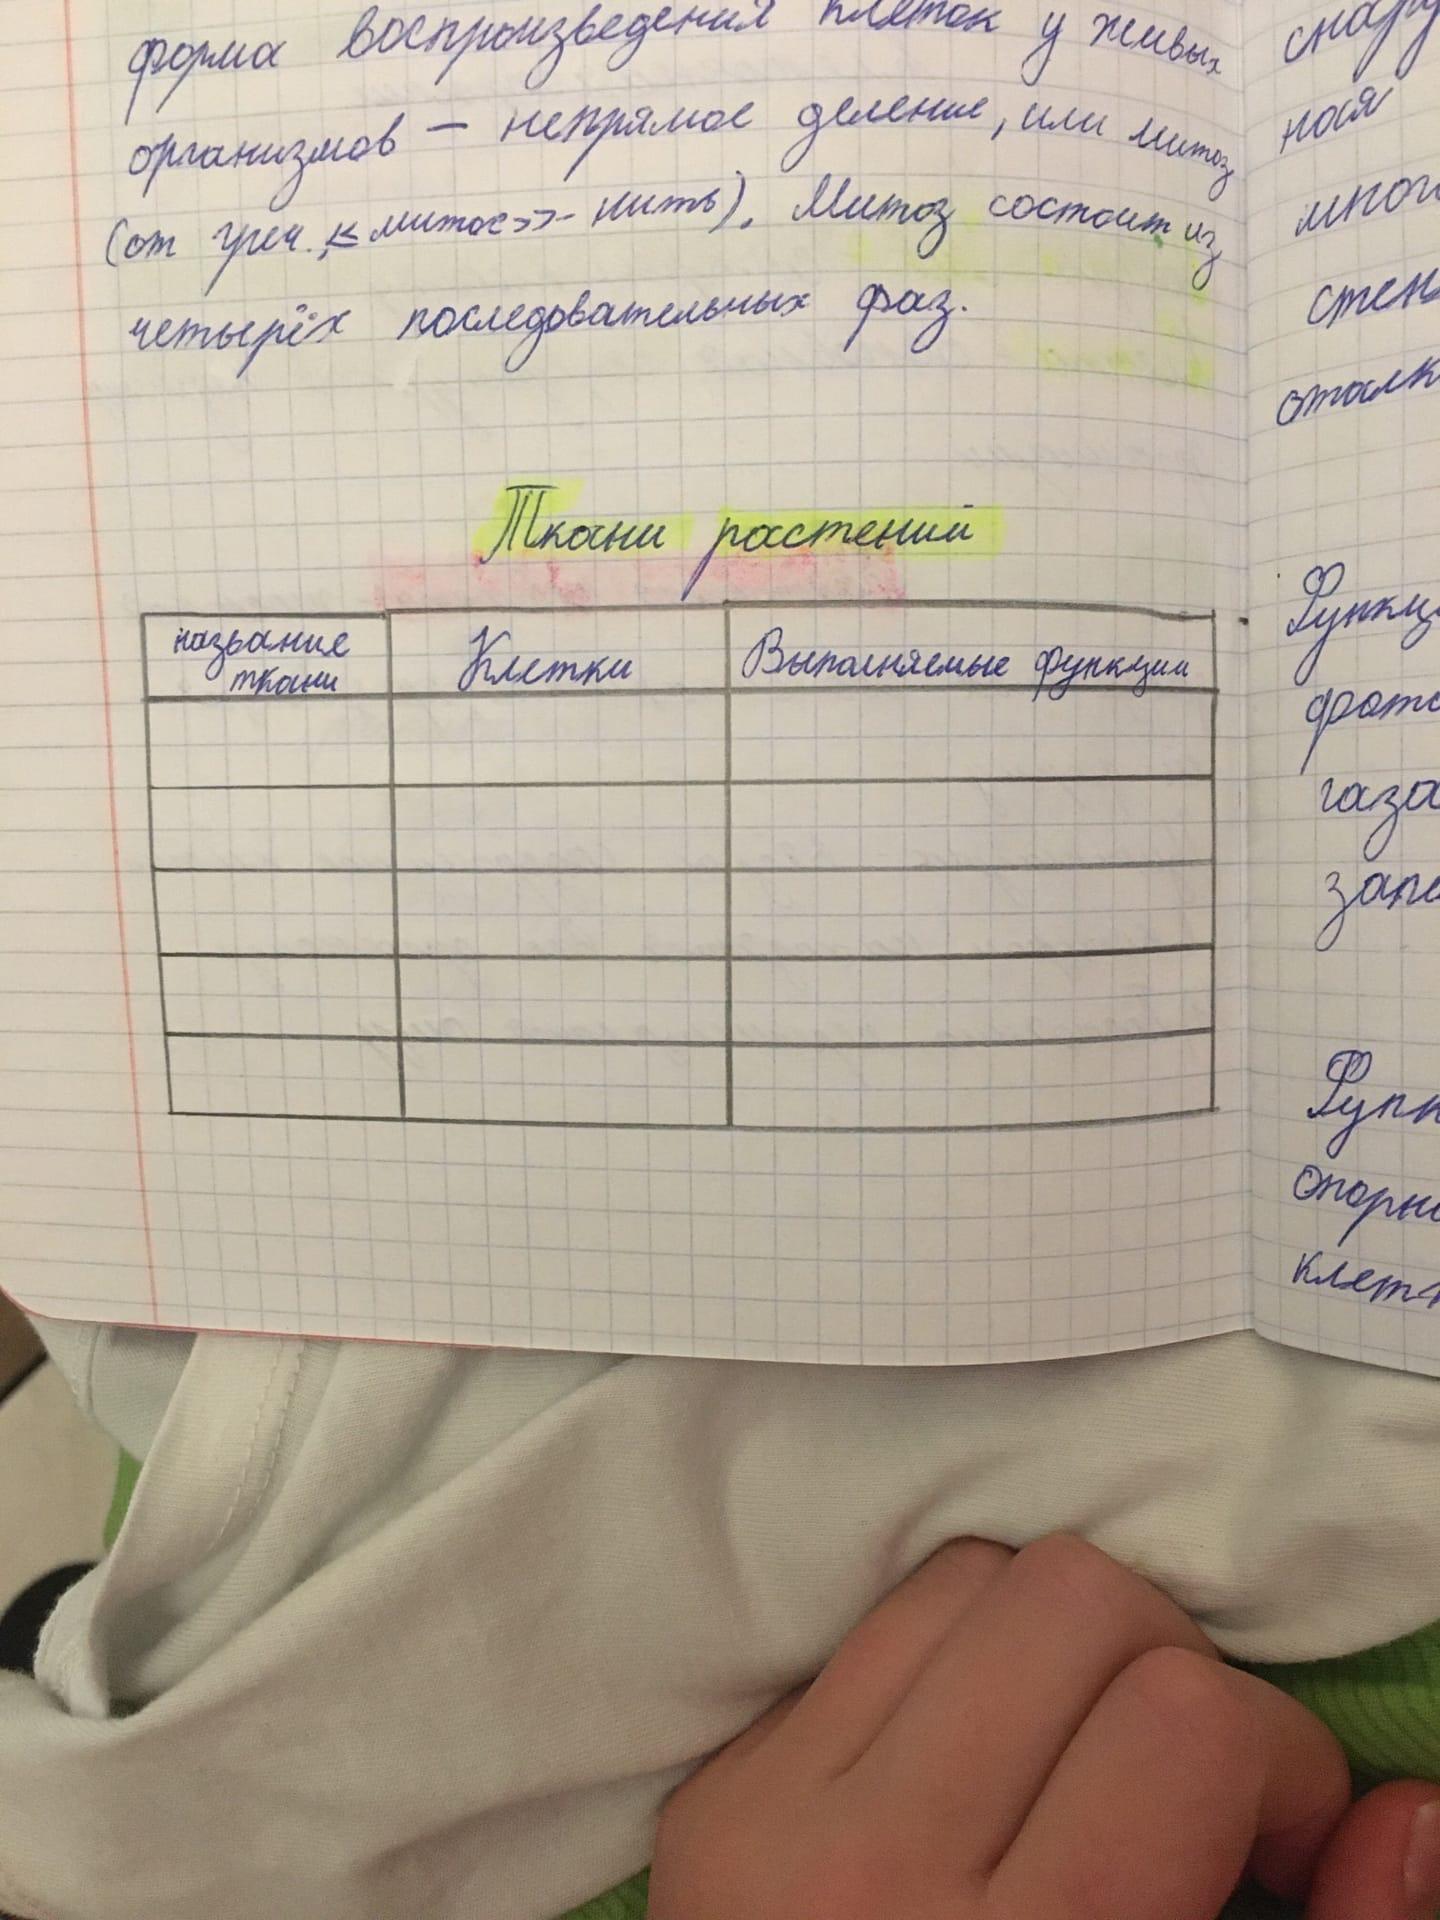 форма воспроизведения клеток у живых
организмов — непрямое деление, или митоз
(от греч. «митос» - нить). Митоз состоит из
четырёх последовательных фаз.
Ткани растений
название ткани
Клетки
Выполняемые функции
нося
стен
Функц
фото
газо
запа
Функ
опорно
клет